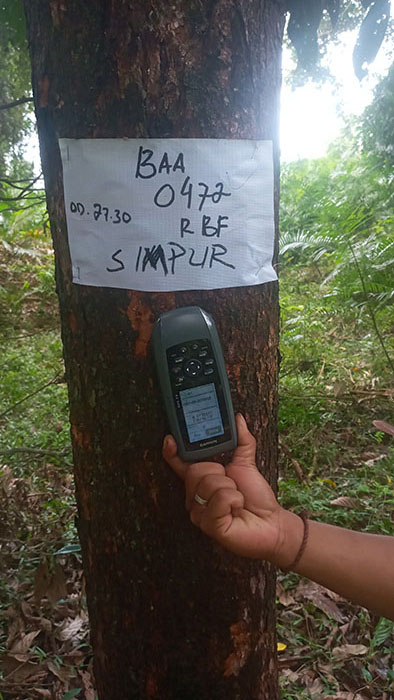 BAA
0472
DD. 27.30
RBF
SIMPUR
GARMIN